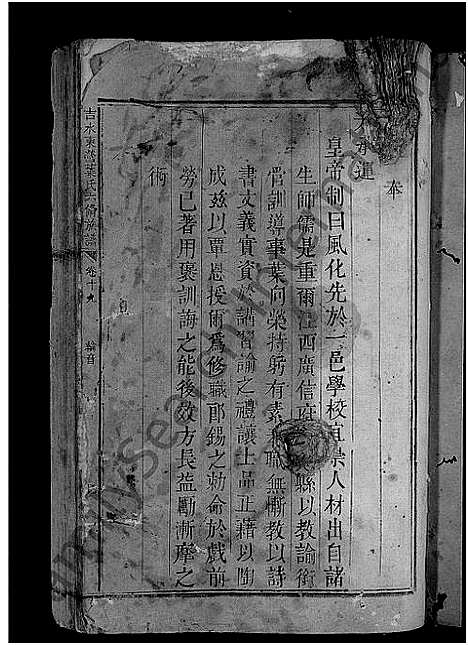 奉
天承運
皇帝制曰風化先於一邑學校宜崇人材出自諸
生師儒是重爾江西廣信府縣以教諭銜
管訓導事葉向榮持躬有素職無慚教以詩
書文義實資於講習諭之禮讓士品正藉以陶
成兹以覃恩授爾爲修職郎錫之勅命於戲前
勞已著用褒訓誨之能後效方長益勵漸摩之
術
吉水東葉氏六脩族譜
卷十九